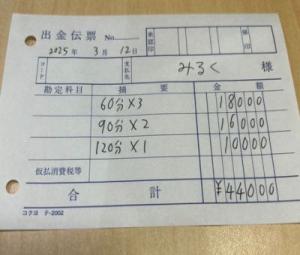 出金伝票 No.
承認印 係印
2025年 3月 12日
コード 支払先 みるく 様
勘定科目 摘要 金額
60分×3 18000
90分×2 16000
120分×1 10000
仮払消費税等
合計 ¥44000
コクヨ テ-2002